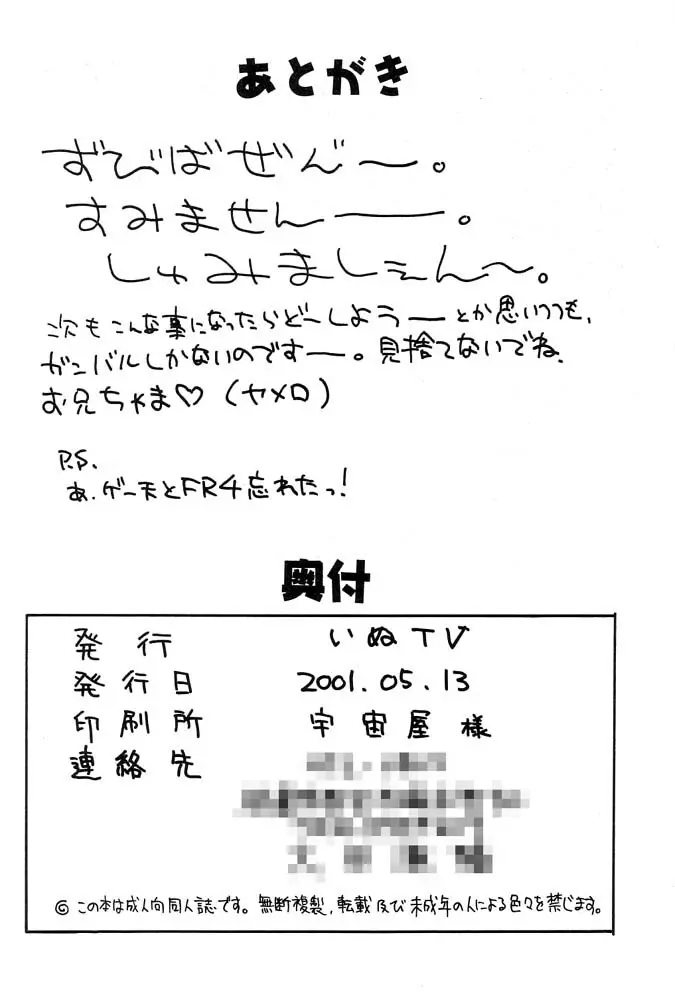 あとがき
ずびばぜんー。
すみませんー。
しゅみましぇん〜。
次もこんな事になったらどーしようーとか思いつつも、
ガンバルしかないのですー。見捨てないでね、
お兄ちゃま♡（ヤメロ）
P.S.
あ、ゲー天とFR4忘れたっ！
奥付
発行 いぬTV
発行日 2001.05.13
印刷所 宇宙屋様
連絡先
© この本は成人向同人誌です。無断複製，転載及び未成年の人による色々を禁じます。